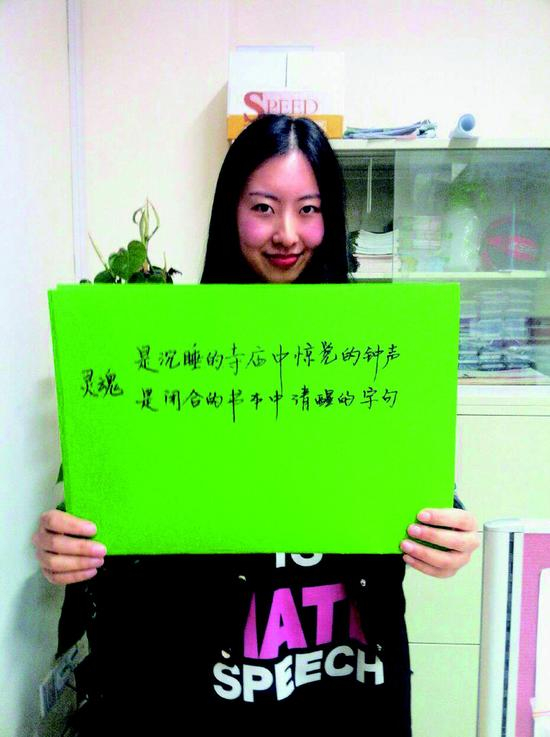 SPEED
是沉睡的寺庙中惊觉的钟声
灵魂
是闭合的书本中清醒的字句
IS
HATE
SPEECH